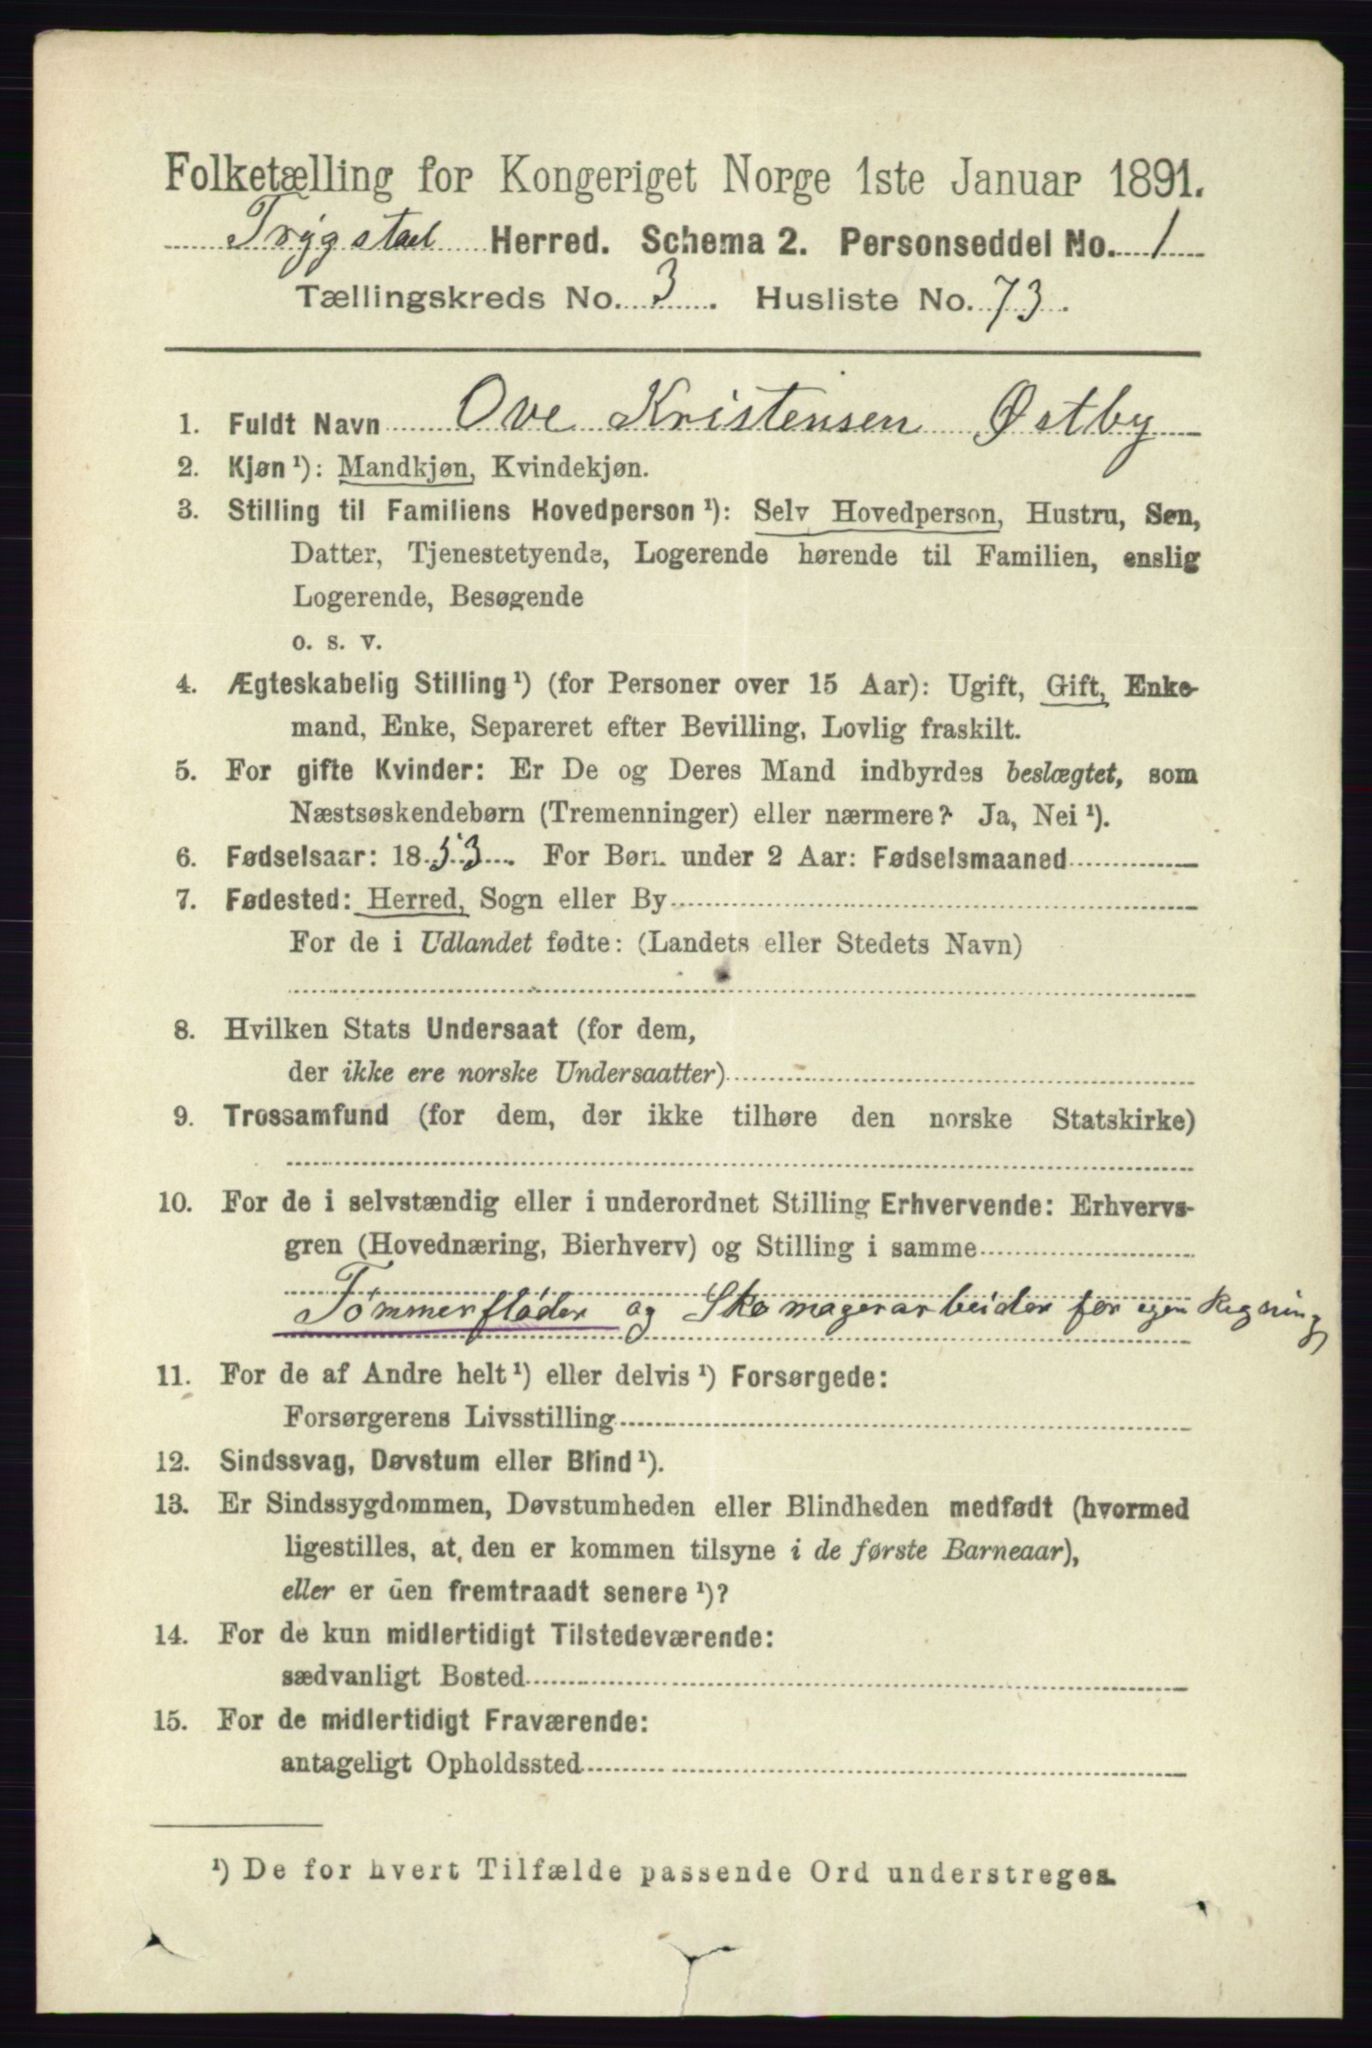 Folketælling for Kongeriget Norge 1ste Januar 1891.
Trygstad Herred. Schema 2. Personseddel No. 1
Tællingskreds No. 3. Husliste No. 73.
1. Fuldt Navn Ove Kristensen Østby
2. Kjøn ¹): Mandkjøn, Kvindekjøn.
3. Stilling til Familiens Hovedperson ¹): Selv Hovedperson, Hustru, Søn,
Datter, Tjenestetyende, Logerende hørende til Familien, enslig
Logerende, Besøgende
o. s. v.
4. Ægteskabelig Stilling ¹) (for Personer over 15 Aar): Ugift, Gift, Enke-
mand, Enke, Separeret efter Bevilling, Lovlig fraskilt.
5. For gifte Kvinder: Er De og Deres Mand indbyrdes beslægtet, som
Næstsøskendebørn (Tremenninger) eller nærmere? Ja, Nei ¹).
6. Fødselsaar: 1853. For Børn under 2 Aar: Fødselsmaaned
7. Fødested: Herred, Sogn eller By
For de i Udlandet fødte: (Landets eller Stedets Navn)
8. Hvilken Stats Undersaat (for dem,
der ikke ere norske Undersaatter)
9. Trossamfund (for dem, der ikke tilhøre den norske Statskirke)
10. For de i selvstændig eller i underordnet Stilling Erhvervende: Erhvervs-
gren (Hovednæring, Bierhverv) og Stilling i samme
Tømmerfløder og Skomagerarbeider for egen Regning
11. For de af Andre helt ¹) eller delvis ¹) Forsørgede:
Forsørgerens Livsstilling
12. Sindssvag, Døvstum eller Blind ¹).
13. Er Sindssygdommen, Døvstumheden eller Blindheden medfødt (hvormed
ligestilles, at den er kommen tilsyne i de første Barneaar),
eller er den fremtraadt senere ¹)?
14. For de kun midlertidigt Tilstedeværende:
sædvanligt Bosted
15. For de midlertidigt Fraværende:
antageligt Opholdssted
¹) De for hvert Tilfælde passende Ord understreges.